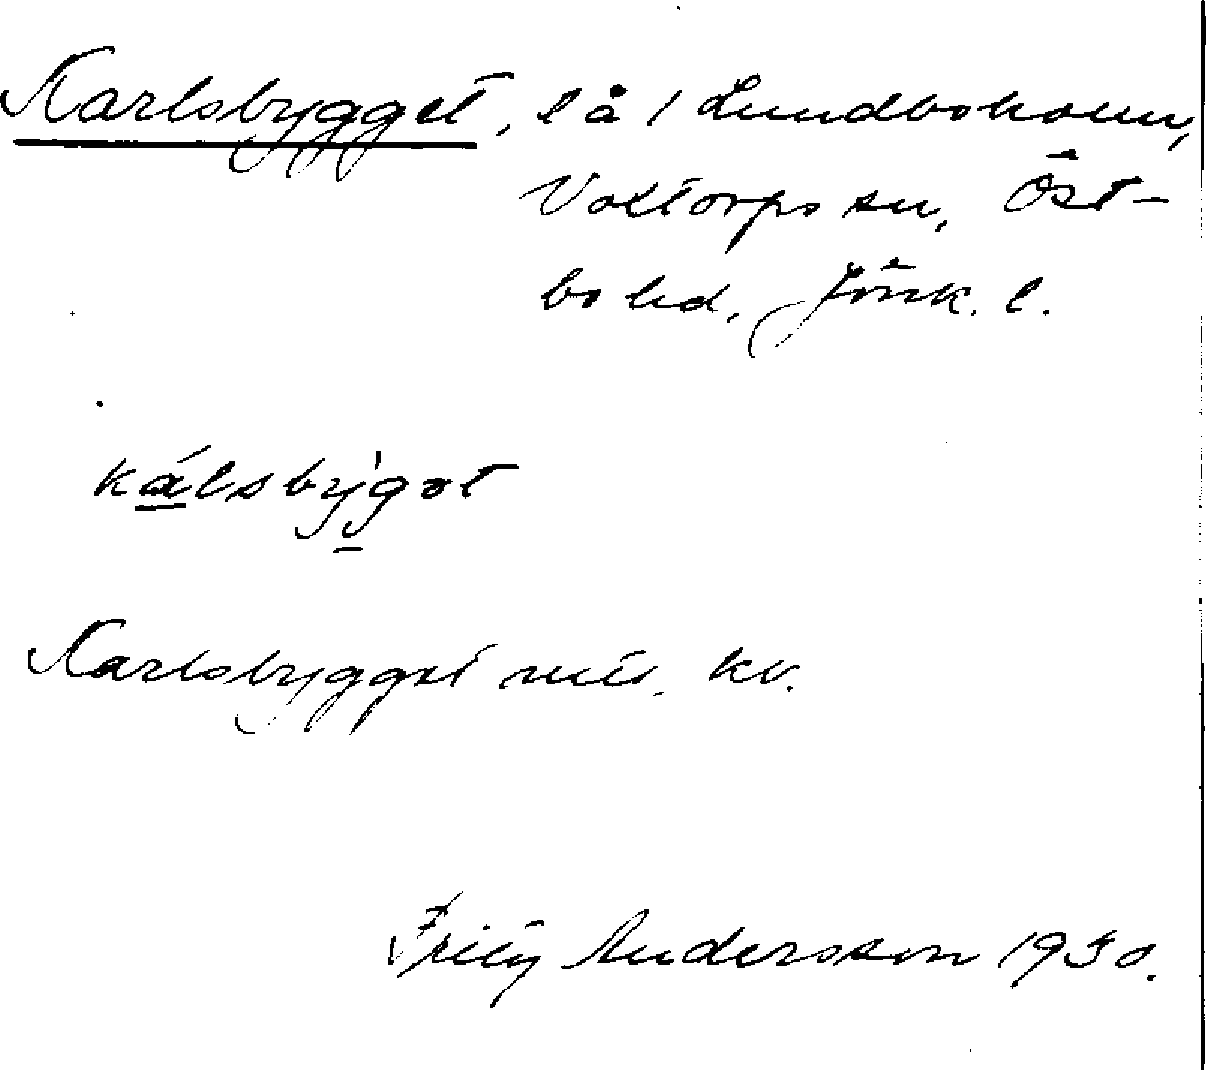 Karlsbygget, lå / Lundboholm,
Voxtorps sn, Öst-
bo hd, Jönk. l.
kálsbýgət
Karlsbygget
Fritz Andersson 1930.